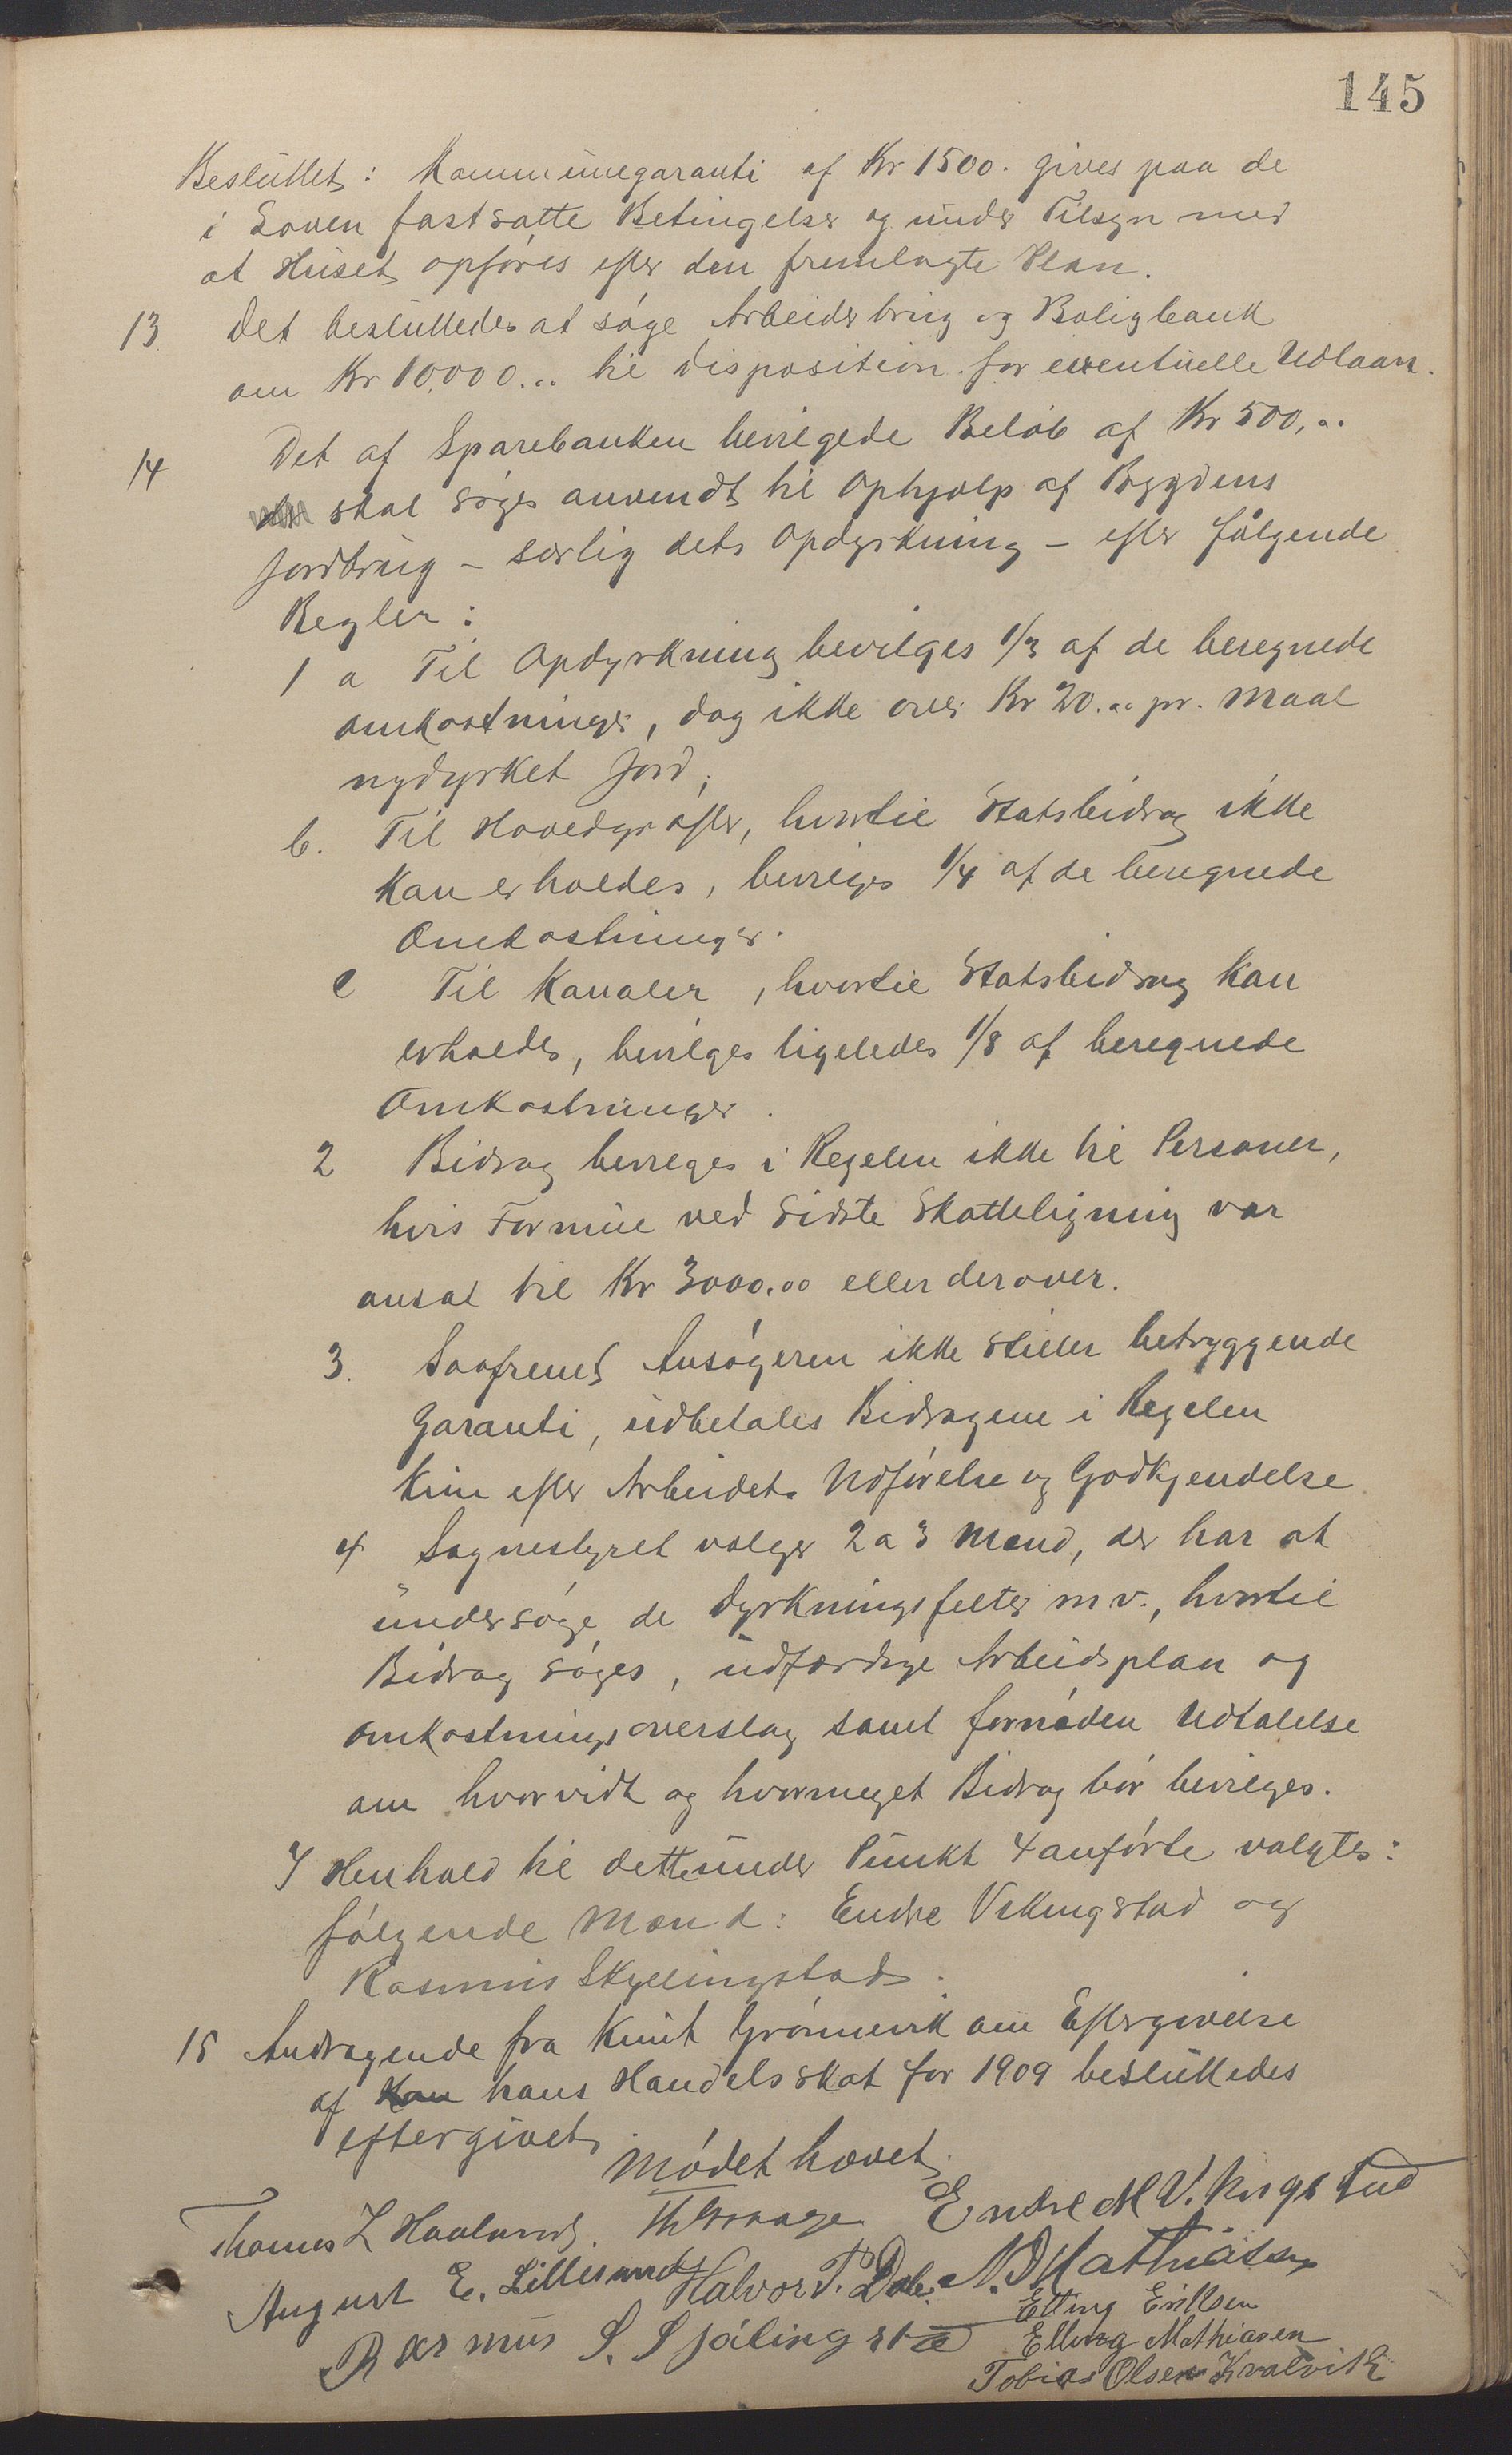 145
Besluttet: Kommunegaranti af Kr 1500. gives paa de
i Loven fastsatte Betingelser og under Tilsyn med
at Huset opføres efter den fremlagte Plan.
13 Det besluttedes at søge Arbeiderbrug og Boligbank
om Kr 10,000.00 til Disposition for eventuelle Udlaan.
14 Det af Sparebanken bevilgede Beløb af Kr 500,00
skal søges anvendt til Ophjælp af Bygdens
Jordbrug – særlig dets Opdyrkning – efter følgende
Regler:
1 a Til Opdyrkning bevilges 1/3 af de beregnede
Omkostninger, dog ikke over Kr 20.00 pr. Maal
nydyrket Jord,
b. Til Hovedgrøfter, hvortil Statsbidrag ikke
kan erholdes, bevilges 1/4 af de beregnede
Omkostninger.
c Til Kanaler, hvortil Statsbidrag kan
erholdes, bevilges ligeledes 1/8 af beregnede
Omkostninger.
2 Bidrag bevilges i Regelen ikke til Personer,
hvis Formue ved sidste Skatteligning var
ansat til Kr 3000.00 eller derover.
3. Saafremt Ansøgeren ikke stiller betryggende
Garanti, udbetales Bidragene i Regelen
kun efter Arbeidets Udførelse og Godkjendelse
4 Sognestyret vælger 2 a 3 Mænd, der har at
undersøge de Dyrkningsfelter m.v., hvortil
Bidrag søges, udfærdige Arbeidsplan og
Omkostningsoverslag samt fornøden Udtalelse
om hvorvidt og hvormeget Bidrag bør bevilges.
I Henhold til dette under Punkt 4 anførte valgtes:
følgende Mænd: Endre Vikingstad og
Rasmus Skyllingstad.
15 Andragende fra Knut Grønnevik om Eftergivelse
af hans Handelsskat for 1909 besluttedes
eftergivet.
Mødet hævet.
Thomas L Haaland. Endre M Vikingstad
August E. Lillesund Halvor T. Dale. N. D Mathiasen
Rasmus S. Sjølingstad Elling Eriksen
Elling Mathiasen
Tobias Olsen Kvalvik